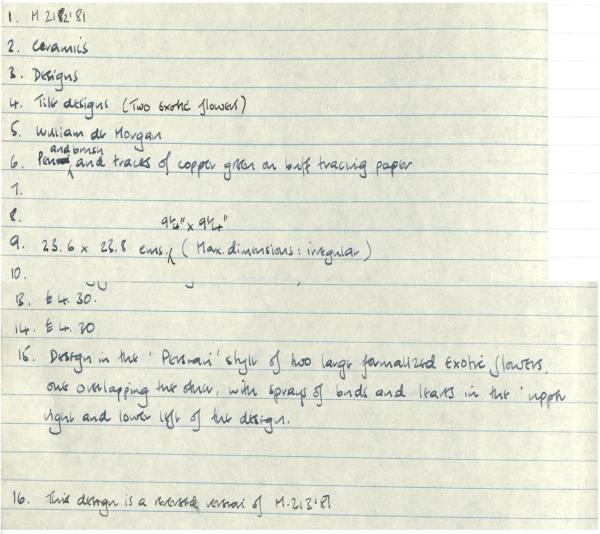 1. M 212'81
2. Ceramics
3. Designs
4. Tile designs (Two exotic flowers)
5. William de Morgan
and brush
6. and traces of copper green on buff tracing paper
7.
8.
9¼" x 9¼"
9. 23.6 x 23.8 cms. (Max. dimensions: irregular)
10.
13. E 4. 30.
14. E 4. 30
15. Design in the 'Persian' style of two large formalized exotic flowers,
one overlapping the other, with sprays of buds and leaves in the upper
right and lower left of the design.
16. This design is a reversed version of M.213'81